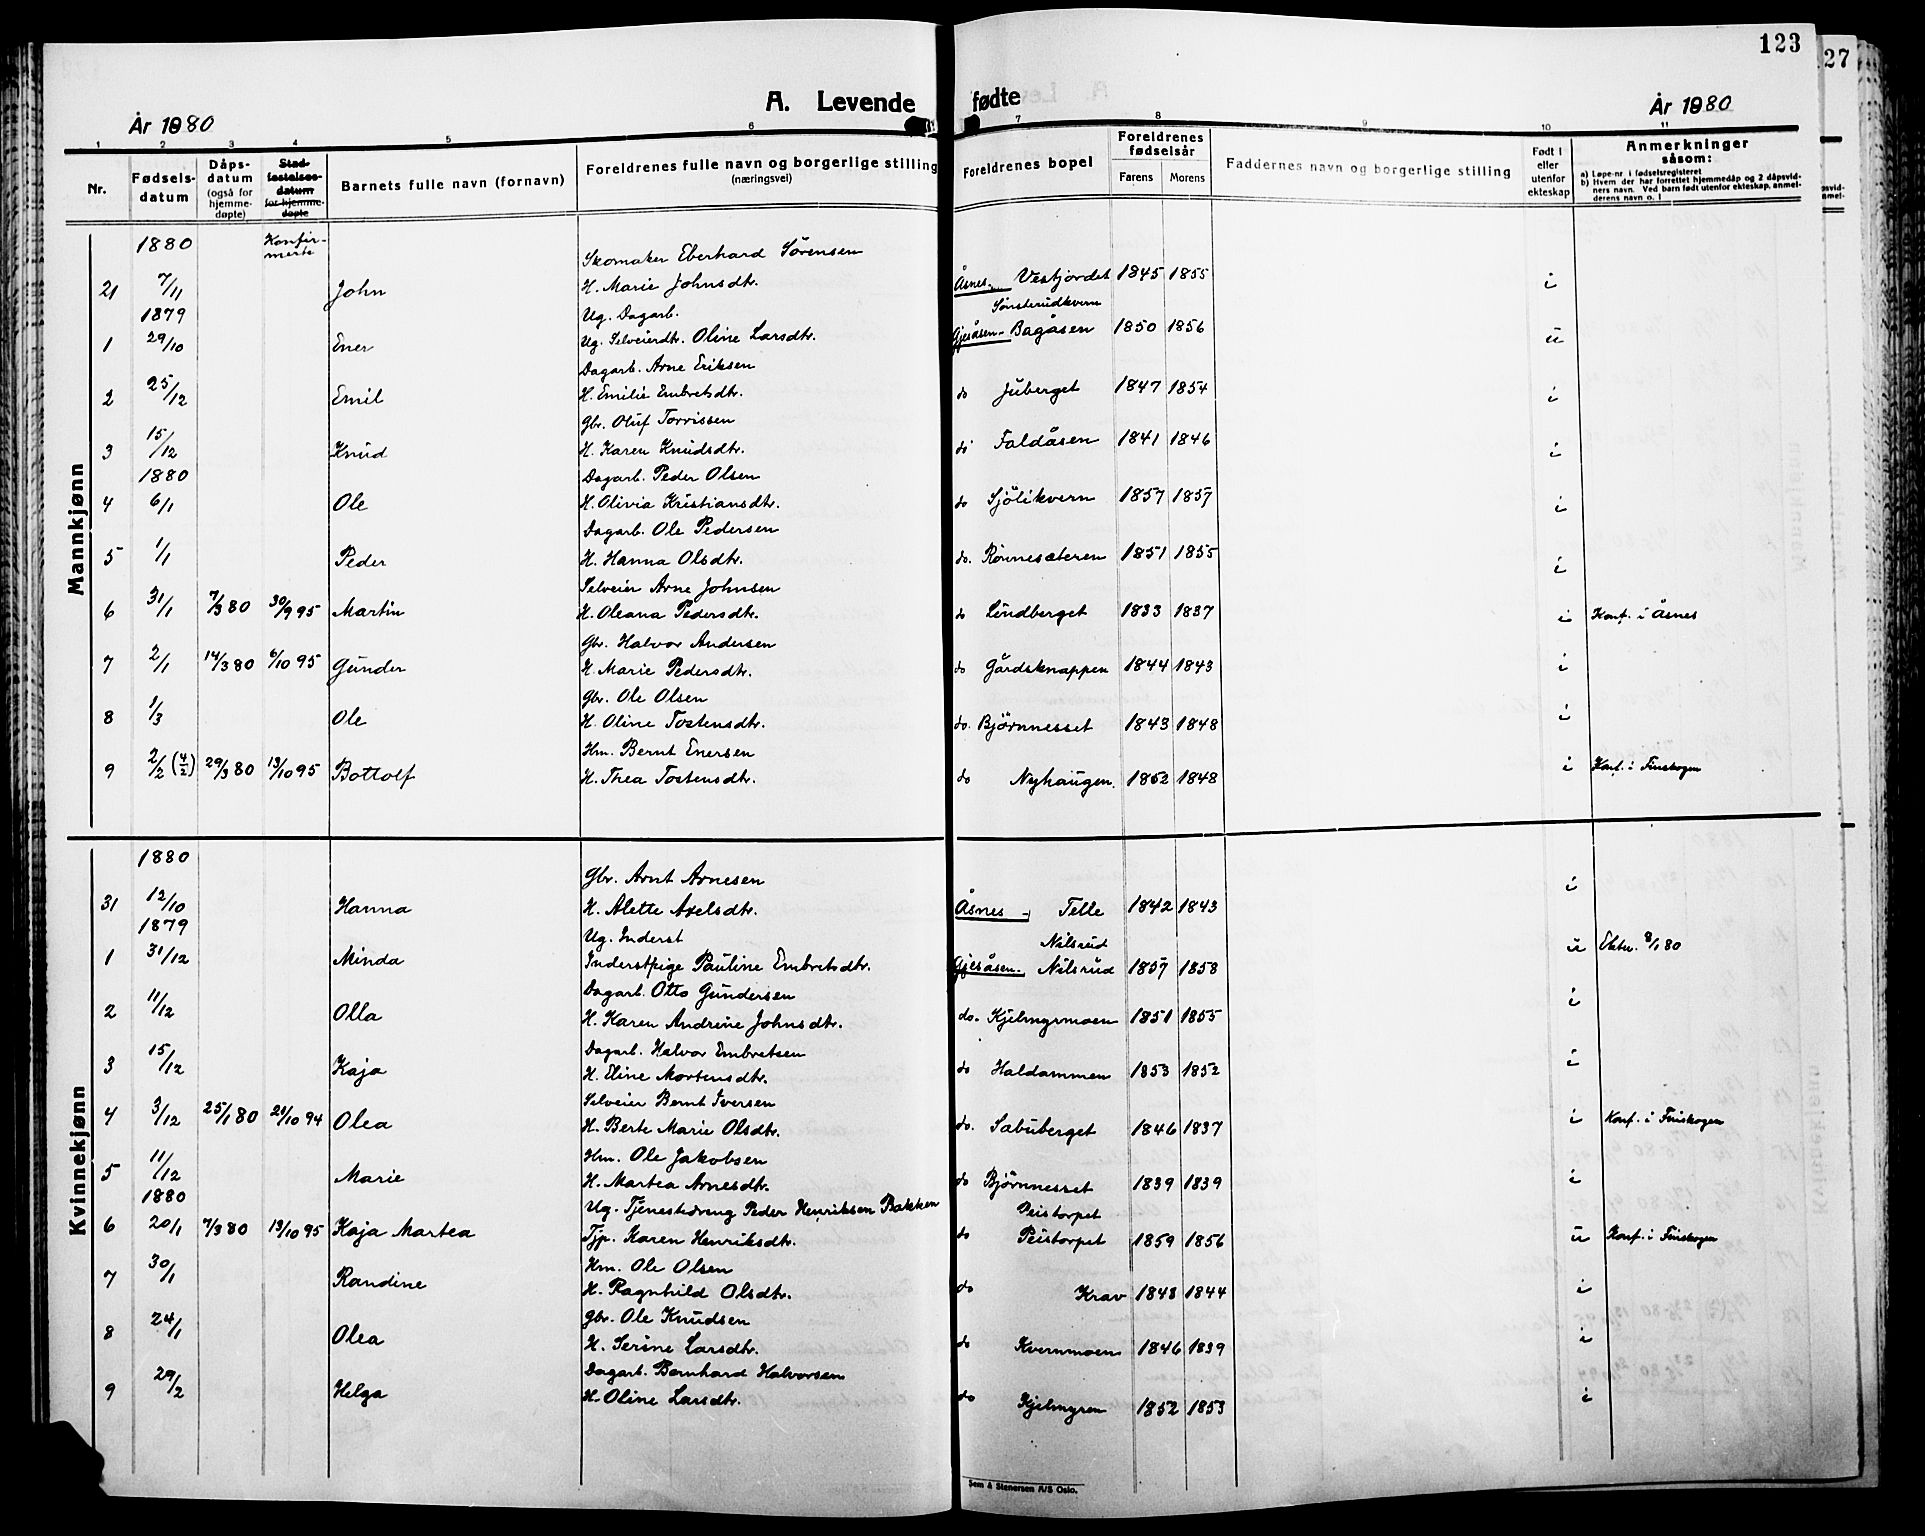 123
27
A. Levende fødte
År 1880
År 1880
1 2 3 4 5 6 7 8 9 10 11
Nr. Fødsels-datum Dåps-datum (også for hjemme-døpte) Stad-festelses-datum for hjemme-døpte Barnets fulle navn (fornavn) Foreldrenes fulle navn og borgerlige stilling (næringsvei) Foreldrenes bopel Foreldrenes fødselsår Farens Morens Faddernes navn og borgerlige stilling Født i eller utenfor ekteskap Anmerkninger såsom:
a) Løpe-nr i fødselsregisteret
b) Hvem der har forrettet hjemmedåp og 2 dåpsvidners navn. Ved barn født utenfor ekteskap, anmelderens navn o. l
Mannkjønn
1880 Konfirmerte Skomaker Eberhard Sörensen
21 7/11 John H. Marie Johnsdtr. Åsnes - Vestjordet 1845 1855 i
1879 Ug. Dagarb. Sønsterudkvern
1 29/10 Ener Ug. Selveierdtr. Oline Larsdtr. Gjesåsen - Bagåsen 1850 1856 u
Dagarb. Arne Eriksen
2 25/12 Emil H. Emilie Embretsdtr. do Juberget 1847 1854 i
Gbr. Oluf Torrissen
3 15/12 Knud H. Karen Knudsdtr. do Faldåsen 1841 1846 i
1880 Dagarb. Peder Olsen
4 6/1 Ole H. Olivia Kristiansdtr. do Sjölikvern 1857 1857 i
Dagarb. Ole Pedersen
5 1/1 Peder H. Hanna Olsdtr. do. Rönnesæteren 1851 1855 i
Selveier Arne Johnsen
6 31/1 7/3 80 30/9 95 Martin H. Oleana Pedersdtr. do Lindberget 1833 1837 i Konf. i Åsnes
Gbr. Halvor Andersen
7 2/1 14/3 80 6/10 95 Gunder H Marie Pedersdtr. do Gårdsknappen 1844 1843 i
Gbr. Ole Olsen
8 1/3 Ole H. Oline Tostensdtr. do. Björnnesset 1843 1848 i
Hm. Bernt Enersen
9 2/2 (4/2) 29/3 80 13/10 95 Bottolf H. Thea Tostensdtr. do Nyhaugen. 1852 1848 i Konf. i Finskogen
Kvinnekjønn
1880 Gbr. Arnt Arnesen
31 12/10 Hanna H. Alette Axelsdtr. Åsnes - Telle 1842 1843 i
1879 Ug. Inderst Nilsrud
1 31/12 Minda Inderstpige Pauline Embretsdtr. Gjesåsen. Nilsrud 1857 1858 u Ekter. 8/1 80
Dagarb. Otto Gundersen
2 11/12 Olla H. Karen Andrine Johnsdtr. do. Kjelmyrmoen 1851 1855 i
Dagarb. Halvor Embretsen
3 15/12 Kaja H. Eline Mortensdtr. do Haldammen 1853 1852 i
Selveier Bernt Iversen
4 3/12 25/1 80 21/10 94 Olea H. Berte Marie Olsdtr. do. Sæbuberget 1846 1837 i Konf. i Finskogen
Hm. Ole Jakobsen
5 11/12 Marie H. Martea Arnesdtr. do Björnnesset 1839 1839 i
1880 Ug. Tjenestedreng Peder Henriksen Bakken Peistorpet
6 20/1 7/3 80 13/10 95 Kaja Martea Tjp. Karen Henriksdtr. do Peistorpet 1859 1856 u Konf. i Finskogen
Hm. Ole Olsen
7 30/1 Randine H. Ragnhild Olsdtr. do Krav 1848 1844 i
Gbr. Ole Knudsen
8 24/1 Olea H. Serine Larsdtr. do Kvernmoen 1846 1839 i
Dagarb. Bernhard Halvorsen
9 29/2 Helga H. Oline Larsdtr. do Kjelmyren 1852 1853 i
Sem & Stenersen A/S Oslo.